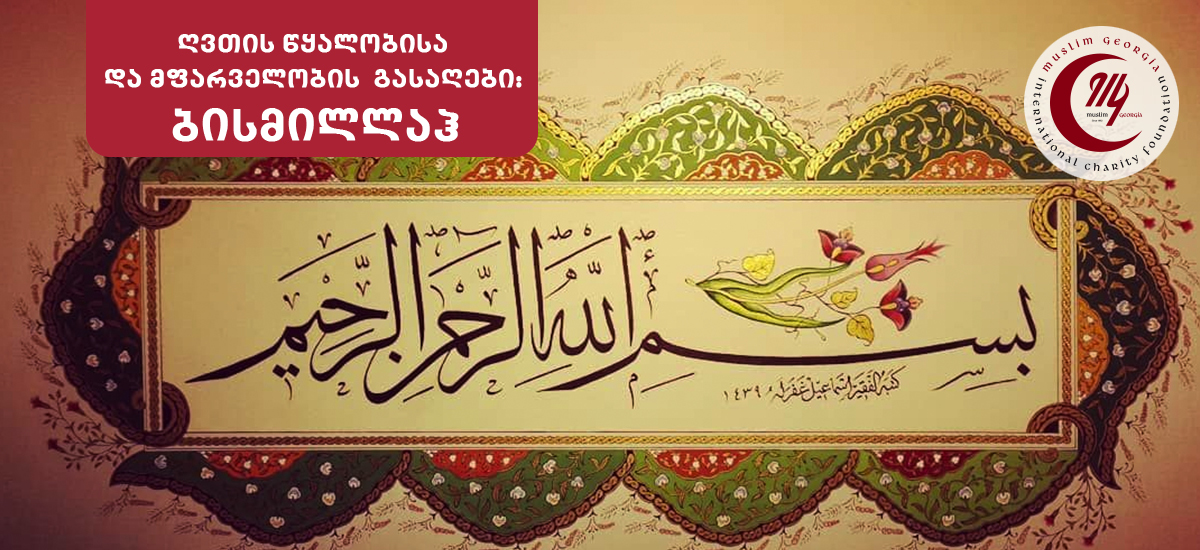 ღვთის წყალობისა
და მფარველობის გასაღები:
ბისმილლაჰ
MUSLIM GEORGIA
INTERNATIONAL CHARITY FOUNDATION
muslim GEORGIA
بِسْمِ اللَّهِ الرَّحْمَٰنِ الرَّحِيمِ
كتبه الفقير اسماعيل غفر له ١٤٣٩